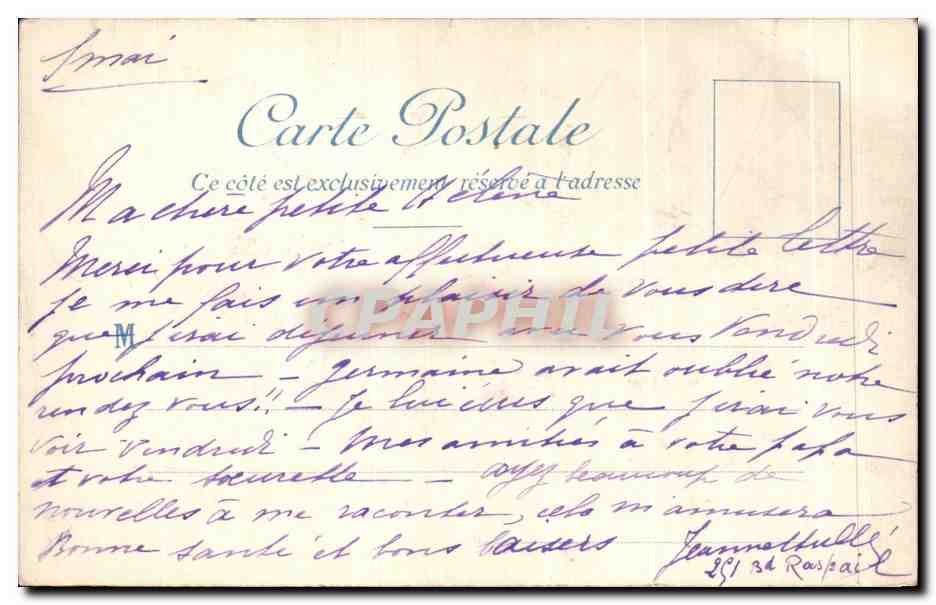 mai
Carte Postale
Ce côté est exclusivement réservé à l'adresse
Ma chère petite Hélène
Merci pour votre affectueuse petite lettre
je me fais un plaisir de vous dire
que j'irai déjeuner avec vous Vendredi
M
prochain – Germaine avait oublié notre
rendez vous!! – Je lui écris que j'irai vous
voir vendredi – Mes amitiés à votre papa
et votre soeurette – ayez beaucoup de
nouvelles à me raconter, cela m'amusera
Bonne santé et bons baisers
251 Bd Raspail
CPAPHIL